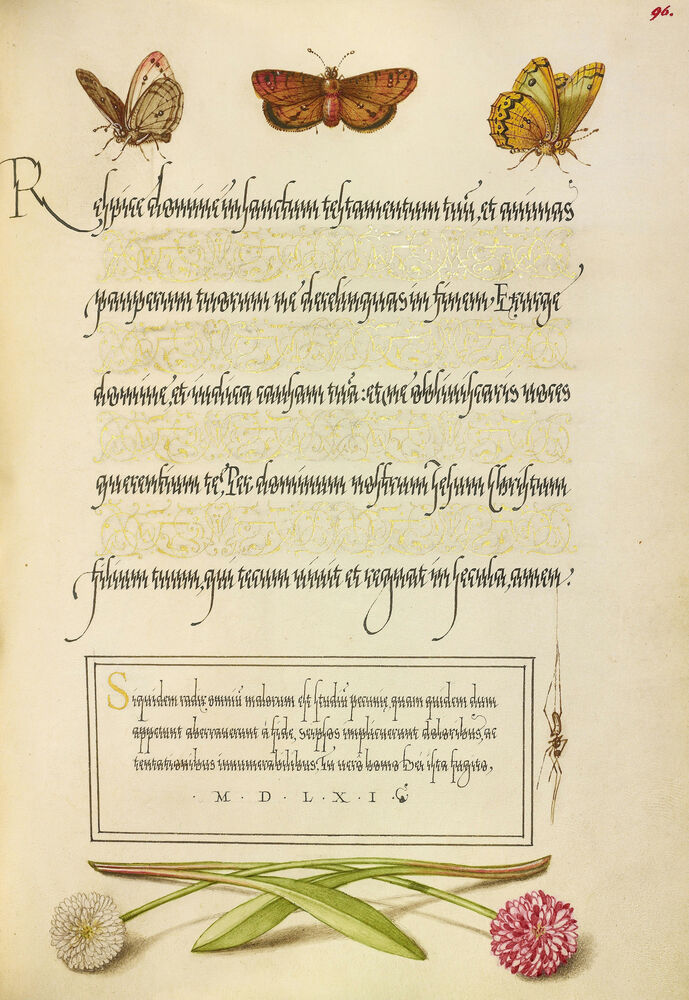 96.
Respice domine in sanctum testamentum tuū, et animas
pauperum tuorum ne derelinquas in finem, Exurge
domine, et iudica causam tuā: et ne obliuiscaris uoces
querentium te, Per dominum nostrum Jesum Christum
filium tuum, qui tecum uiuit et regnat in secula, amen:
Siquidem radix omniū malorum est studiū pecunie, quam quidem dum
appetunt aberrauerunt à fide, seipsos implicuerunt doloribus, ac
tentationibus innumerabilibus. Tu uero homo Dei ista fugito,
· M · D · L · X · I ·